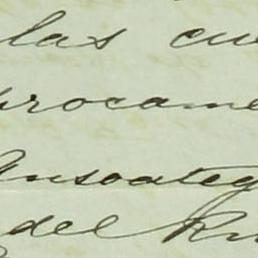 las cue
procame
Ansoateg
del Ru